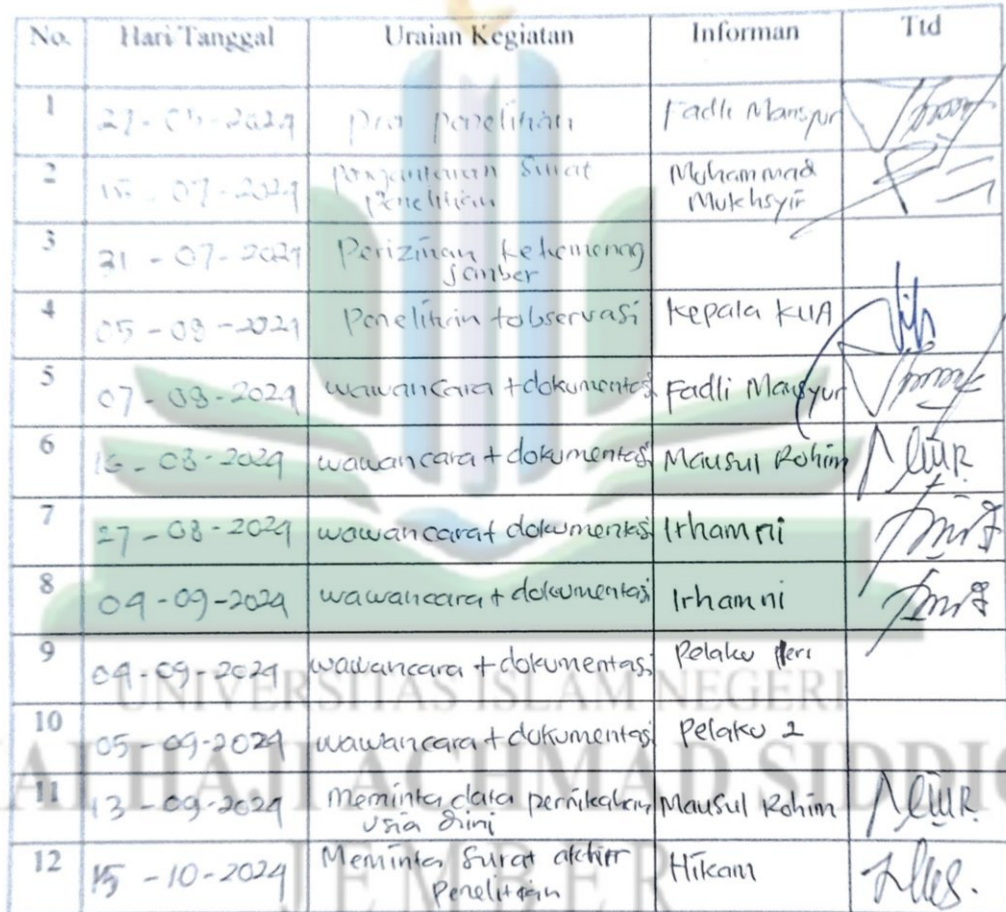 No. Hari/Tanggal Uraian Kegiatan Informan Ttd
1 pra penelitian Fadli Mansyur
2 07-2024 pengantaran Surat Penelitian Muhammad Mukhsyir
3 31-07-2024 Perizinan kekemenag jember
4 05-08-2024 Penelitian + observasi Kepala KUA
5 07-08-2024 wawancara + dokumentasi Fadli Mansyur
6 16-08-2024 wawancara + dokumentasi Mausul Rohim
7 27-08-2024 wawancara + dokumentasi Irhamni
8 04-09-2024 wawancara + dokumentasi Irhamni
9 04-09-2024 wawancara + dokumentasi Pelaku
UNIVERSITAS ISLAM NEGERI
10 05-09-2024 wawancara + dokumentasi Pelaku 2
ACHMAD SIDDIQ
11 13-09-2024 Meminta data pernikahan usia dini Mausul Rohim
12 15-10-2024 Meminta surat akhir Penelitian Hikam
JEMBER